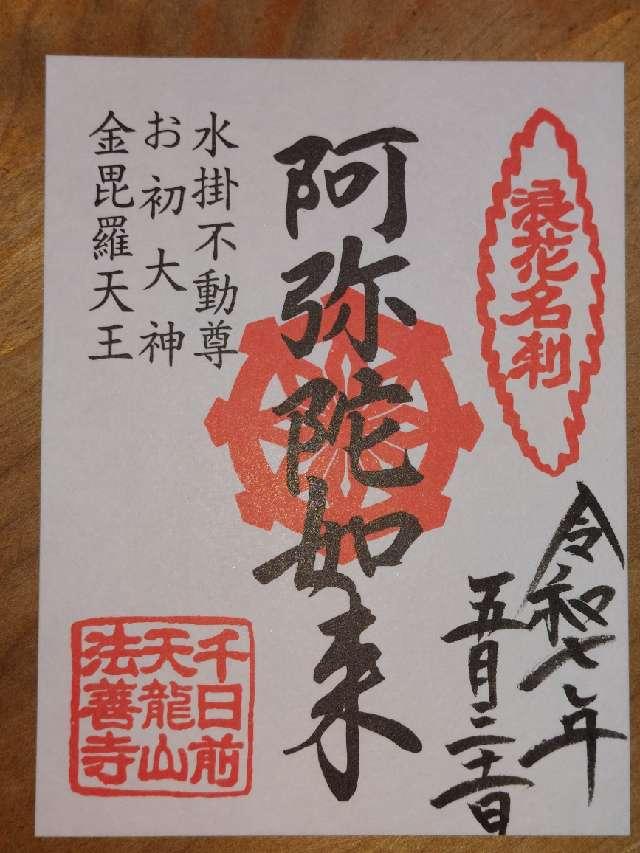 浪花名刹
令和七年
五月二十二日
阿弥陀如来
水掛不動尊
お初大神
金毘羅天王
千日前
天龍山
法善寺